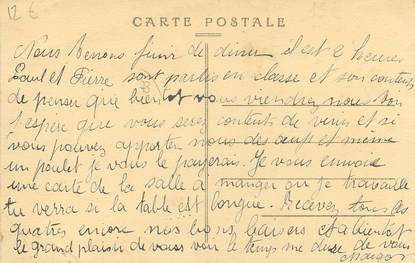 12 €
CARTE POSTALE
Nous venons finir de diner il est 2 heures
Paul et Pierre sont partis en classe et son contents
de penser que bientot vous viendrez nous voir
J'espère que vous serez contents de venir et si
vous pouvez apporter nous des oeuf et même
un poulet je vous le payerais. Je vous envoie
une carte de la salle a manger qu je travaille
tu verra si la table est longue. Recevez tous les
quatres encore nos bons baisers et a bientot
le grand plaisir de vous voir le temps me dure de vous